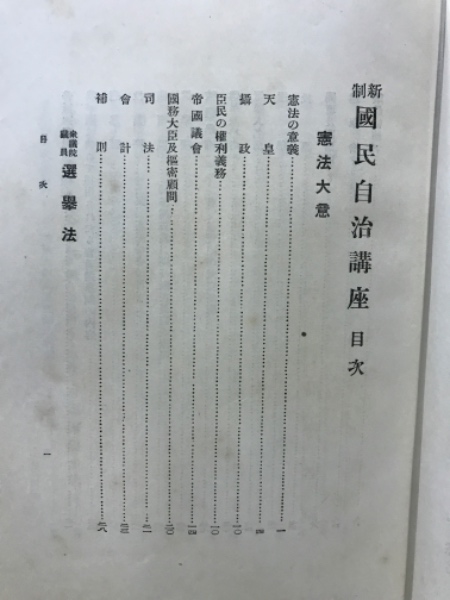 新制 國民自治講座 目次
憲法大意
憲法の意義……一
天皇……四
攝政……一〇
臣民の權利義務……一〇
帝國議會……一四
國務大臣及樞密顧問……二〇
司法……二一
會計……二三
補則……二六
衆議院議員 選擧法
目次 一